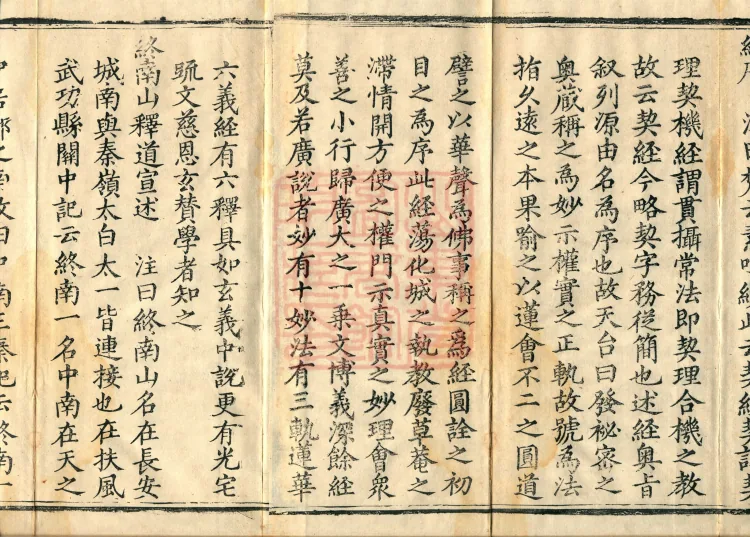 理契機經謂貫攝常法即契理合機之教
故云契經今略契字務從簡也述經奧旨
叙列源由名為序也故天台曰發祕密之
奧蔵稱之為妙示權實之正軌故號為法
指久遠之本果喻之以蓮會不二之圓道
譬之以華聲為佛事稱之為經圓詮之初
目之為序此經蕩化城之執教廢草菴之
滯情開方便之權門示真實之妙理會衆
善之小行歸廣大之一乗文博義深餘經
莫及若廣說者妙有十妙法有三軌蓮華
六義經有六釋具如玄義中說更有光宅
䟽文慈恩玄賛學者知之
終南山釋道宣述　注曰終南山名在長安
城南與秦嶺太白太一皆連接也在扶風
武功縣關中記云終南一名中南在天之